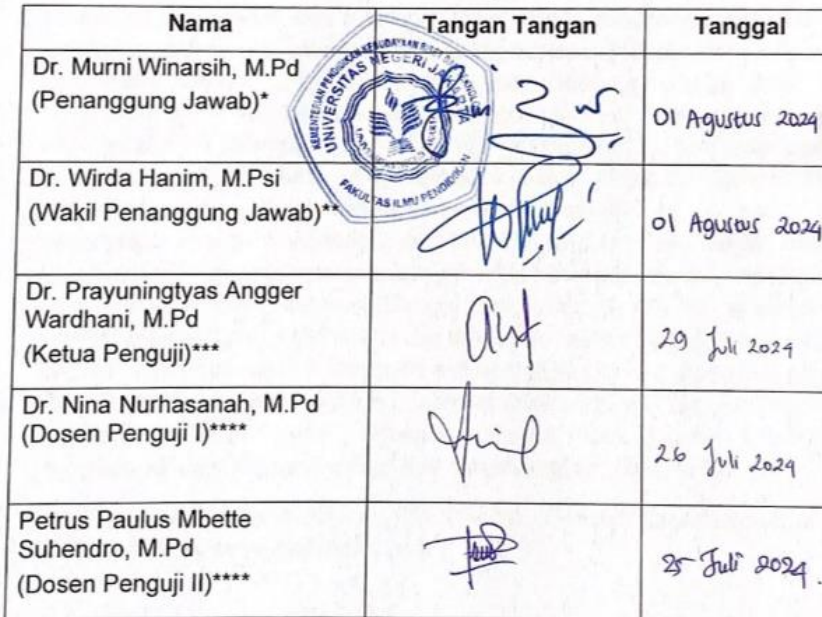 Nama Tangan Tangan Tanggal
Dr. Murni Winarsih, M.Pd
(Penanggung Jawab)*
01 Agustus 2024
KEMENTERIAN PENDIDIKAN KEBUDAYAAN RISET DAN TEKNOLOGI
UNIVERSITAS NEGERI JAKARTA
FAKULTAS ILMU PENDIDIKAN
Dr. Wirda Hanim, M.Psi
(Wakil Penanggung Jawab)**
01 Agustus 2024
Dr. Prayuningtyas Angger
Wardhani, M.Pd
(Ketua Penguji)***
29 Juli 2024
Dr. Nina Nurhasanah, M.Pd
(Dosen Penguji I)****
26 Juli 2024
Petrus Paulus Mbette
Suhendro, M.Pd
(Dosen Penguji II)****
25 Juli 2024.